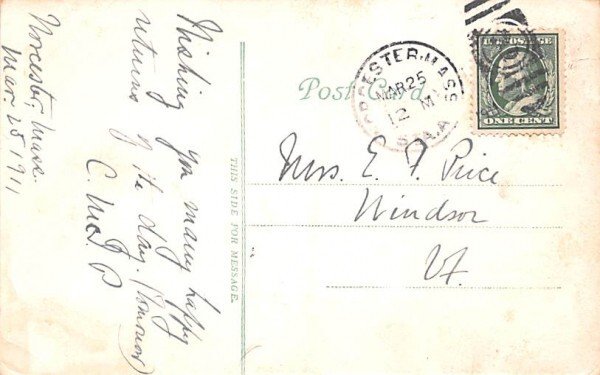 Worcester, Mass.
Mar. 25 1911
Wishing you many happy
returns of the day. (tomorrow)
C. McF. P
THIS SIDE FOR MESSAGE.
Post Card.
WORCESTER, MASS.
MAR 25
12 M
STA. A
U.S. POSTAGE
ONE CENT
Mrs. E. F. Price
Windsor
Vt.